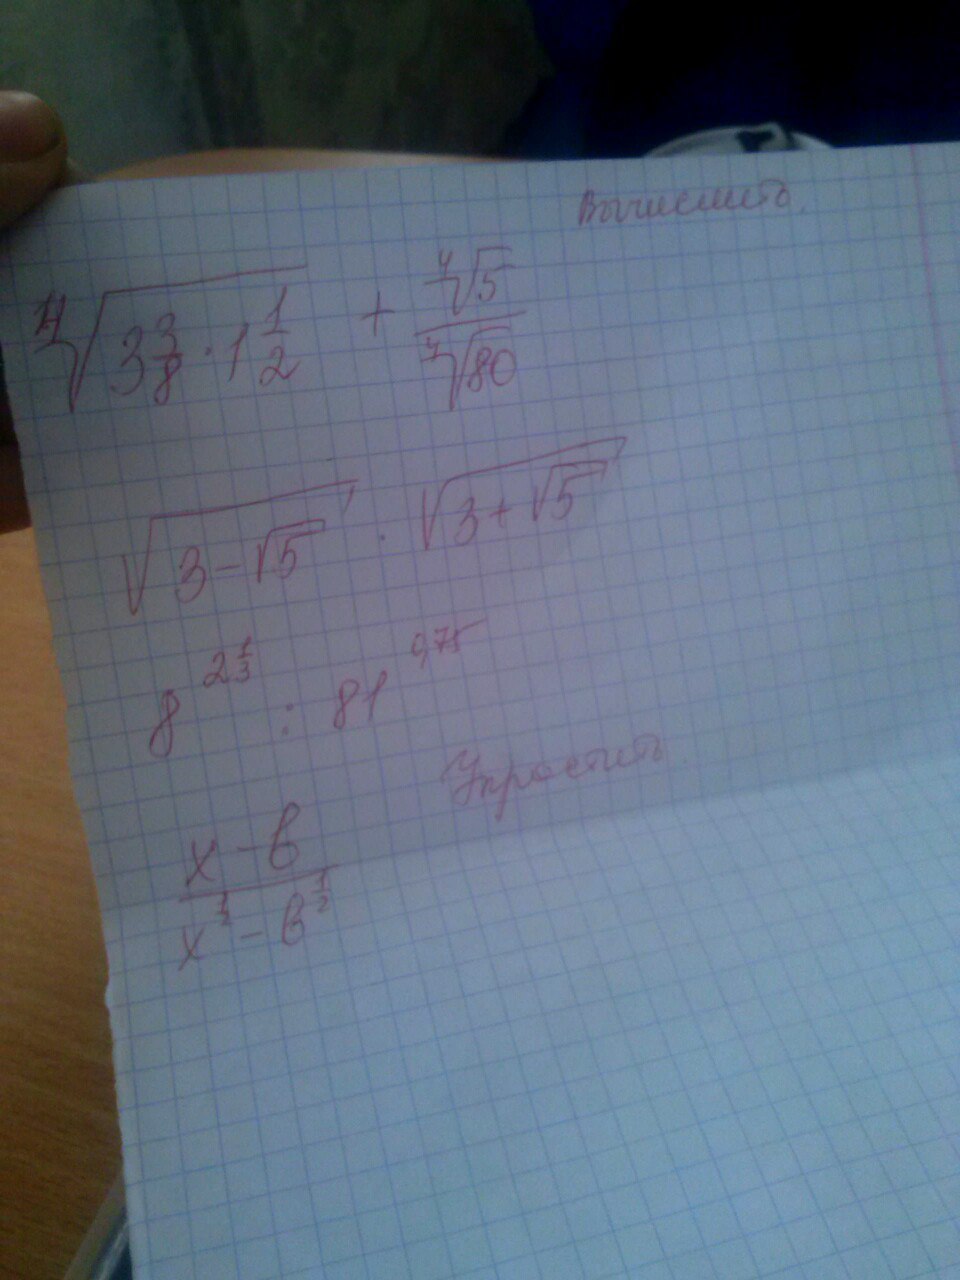 Вычислить.
⁴√(3 3/8 · 1 1/2) + ⁴√5 / ⁴√80
√(3-√5) · √(3+√5)
8^(2 1/3) : 81^(0,75)
Упростить
(x - в) / (x^(1/2) - в^(1/2))